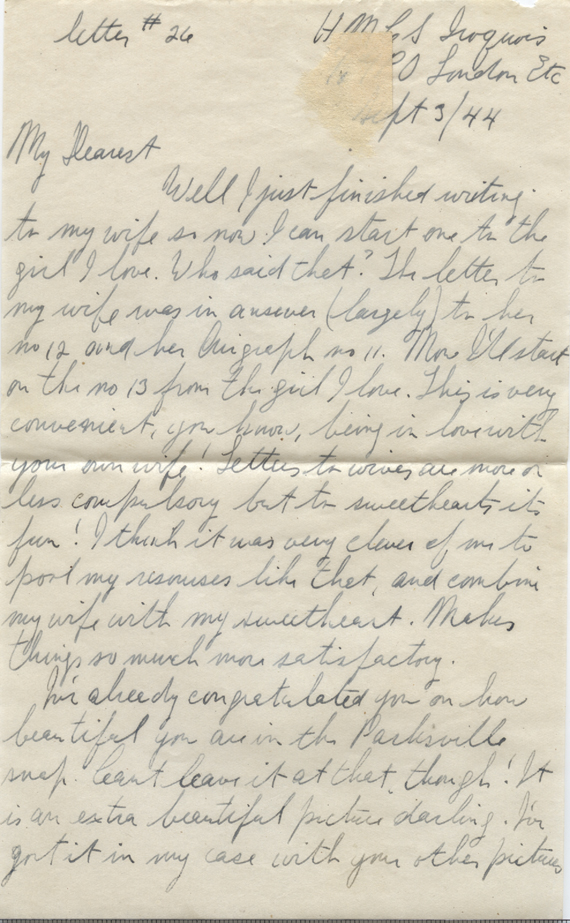 letter # 26
H M C S Iroquois
P O London Etc
Sept 3/44
My Dearest
Well I just finished writing
to my wife so now I can start one to the
girl I love. Who said that? The letter to
my wife was in answer (largely) to her
no 12 and her Airgraph no 11. Now I'll start
on the no 13 from the girl I love. This is very
convenient, you know, being in love with
your own wife! Letters to wives are more or
less compulsory but to sweethearts its
fun! I think it was very clever of me to
pool my resourses like that, and combine
my wife with my sweetheart. Makes
things so much more satisfactory.
I've already congratulated you on how
beautiful you are in the Parksville
snap. Can't leave it at that, though! It
is an extra beautiful picture darling. I've
got it in my case with your other pictures